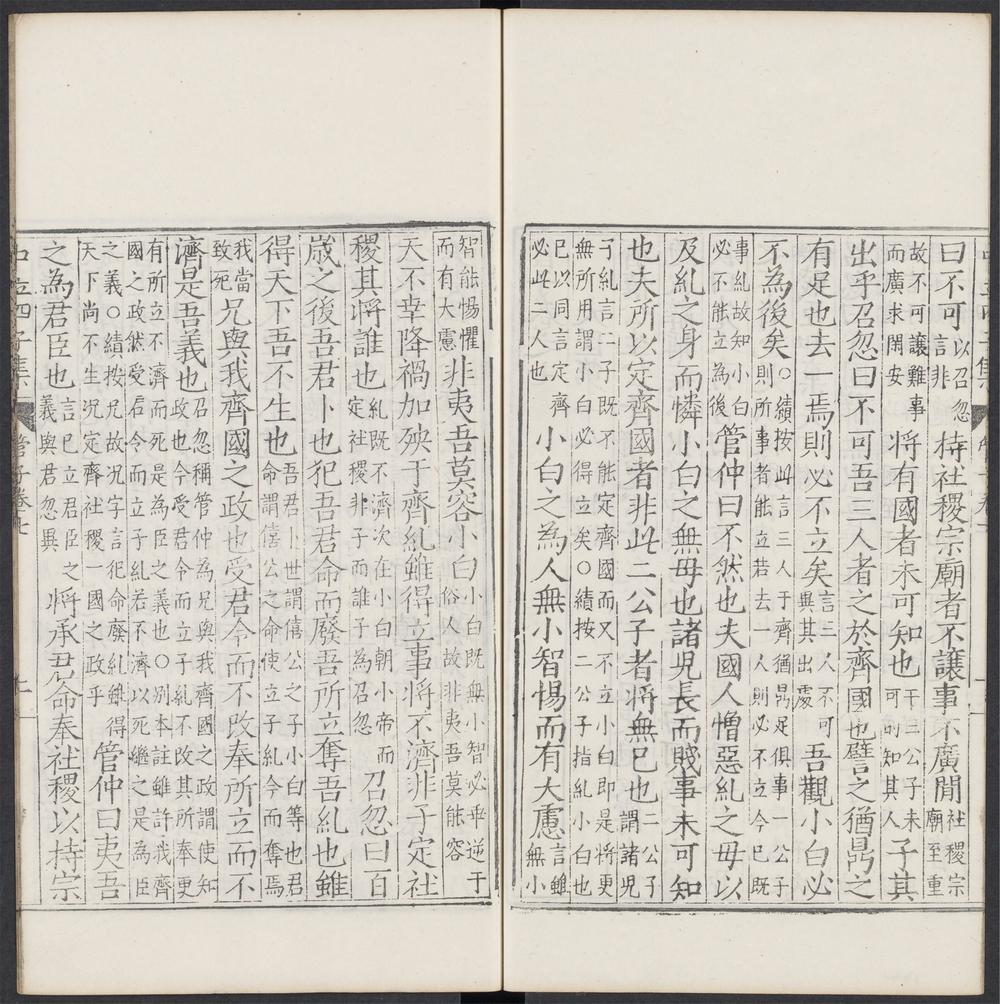 曰不可以召忽言非持社稷宗廟者不讓事不廣閒社稷宗廟至重
故不可讓難事而廣求閑安將有國者未可知也于三公子未可則知其人子其
出乎召忽曰不可吾三人者之於齊國也譬之猶鼎之
有足也去一焉則必不立矣言三人不可異其出處吾觀小白必
不為後矣○績按此言三人于齊猶鼎足俱事一公子則所事者能立若去一人則必不立今已既
事糺故知小白必不能立為後管仲曰不然也夫國人憎惡糺之毋以
及糺之身而憐小白之無毋也諸兒長而賤事未可知
也夫所以定齊國者非此二公子者將無已也二公子謂諸兒
子糺言二子既不能定齊國而又不立小白即是將更無所用謂小白必得立矣○績按二公子指糺小白也
已以同言定齊必此二人也小白之為人無小智惕而有大慮言雖無小
智能惕懼而有大慮非夷吾莫容小白小白既無小智必乖逆于俗人故非夷吾莫能容
天不幸降禍加殃于齊糺雖得立事將不濟非子定社
稷其將誰也糺既不濟次在小白朝小帝而定社稷非子而誰子為召忽召忽曰百
歲之後吾君卜也犯吾君命而廢吾所立奪吾糺也雖
得天下吾不生也吾君卜世謂僖公之子小白等也君命謂僖公之命使立子糺今而奪焉
我當致死兄與我齊國之政也受君令而不改奉所立而不
濟是吾義也召忽稱管仲為兄與我齊國之政謂使知政也今受君令而立子糺不改其所奉更
有所立不濟而死是為臣之義也○別本註雖許我齊國之政然受君令而立子糺若不濟以死繼之是為臣
之義○績按兄故况字言犯命廢糺雖得天下尚不生况定齊社稷一國之政乎管仲曰夷吾
之為君臣也言已立君臣之義與君忽異將承君命奉社稷以持宗
中立四子集 管子卷七